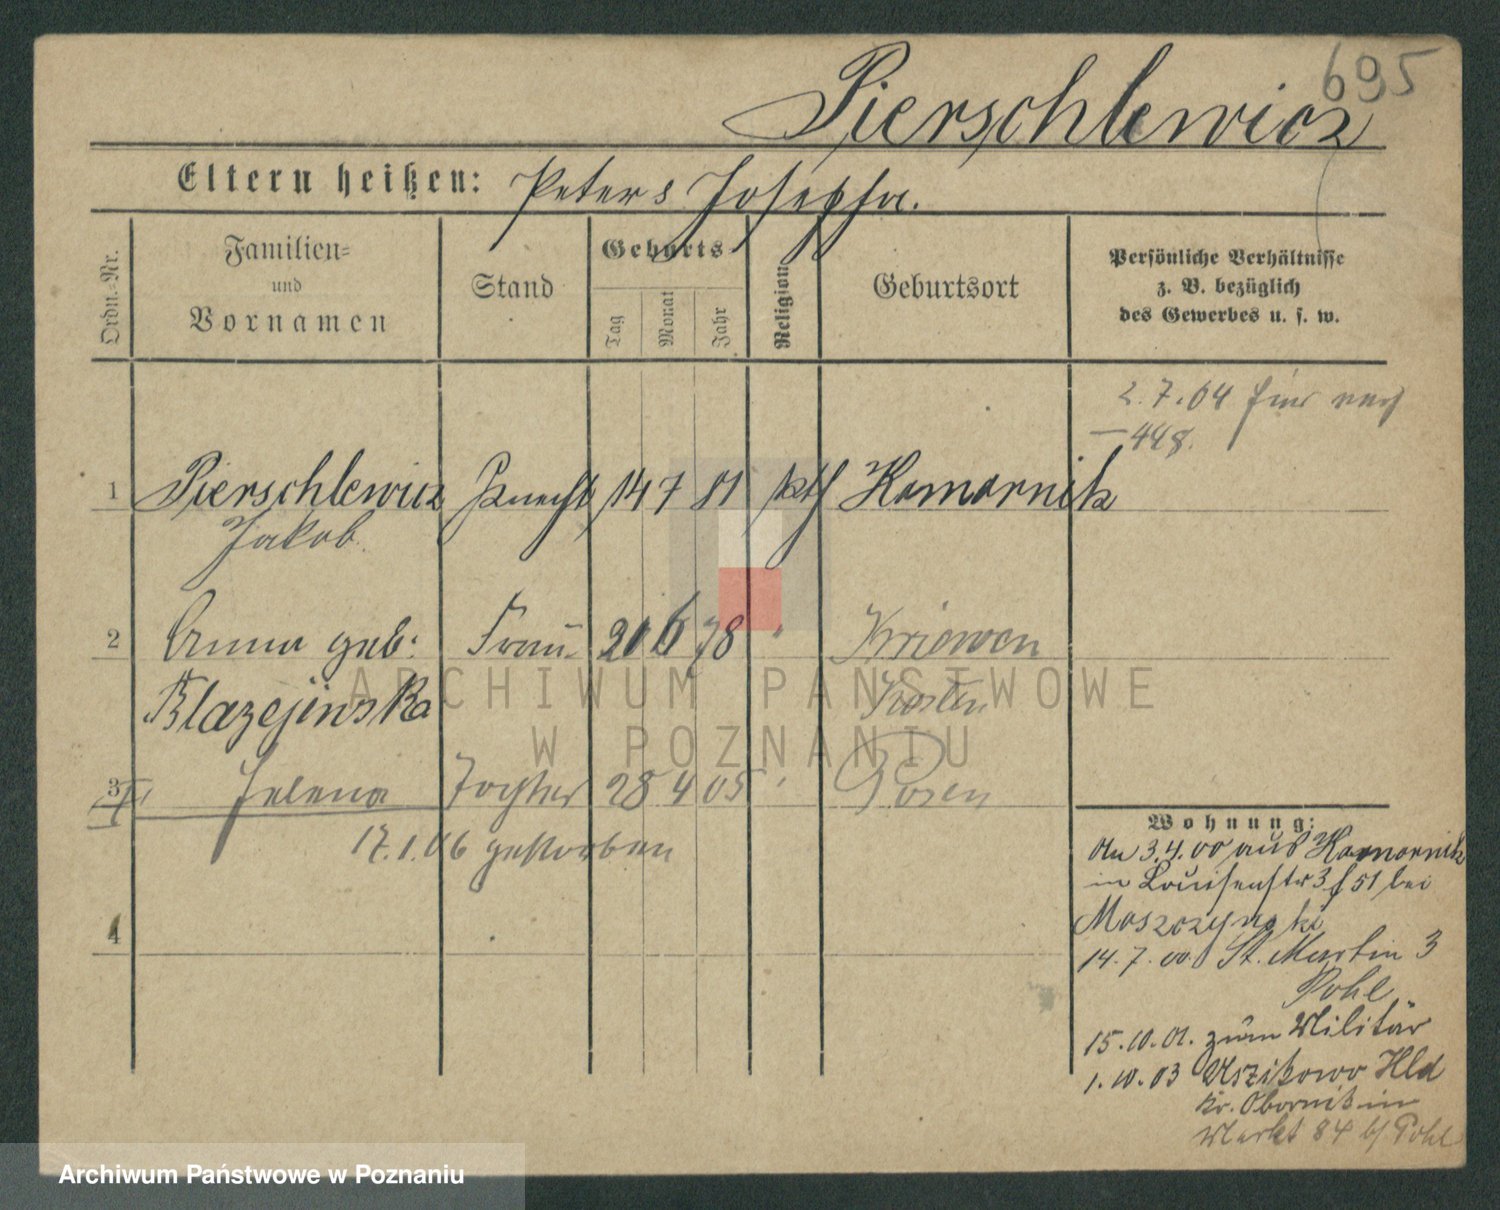 695
Pierschlewicz
Eltern heißen: Peter s Josepha.
Ordn.-Nr.
Familien-
und
Vornamen
Stand
Geburts
Tag
Monat
Jahr
Religion
Geburtsort
Persönliche Verhältnisse
z. B. bezüglich
des Gewerbes u. s. w.
2.7.04
448.
1 Pierschlewicz Knecht 14 7 81 kth Komornik
Jakob.
2 Anna geb: Frau 20 6 78 " Kriewen
Blazejewska Kosten
3 Helena Tochter 28 4 05 " Posen
17.1.06 gestorben
4
Wohnung:
An 3.4.00 aus Komornik
in Louisenstr 3 f 51 bei
Moszczynski
14.7.00 St. Martin 3
Pohl
15.10.01. zum Militär
1.10.03 Uszikowo Hld
Kr. Obornik in
Markt 84 b/ Pohl
ARCHIWUM PAŃSTWOWE
W POZNANIU
Archiwum Państwowe w Poznaniu